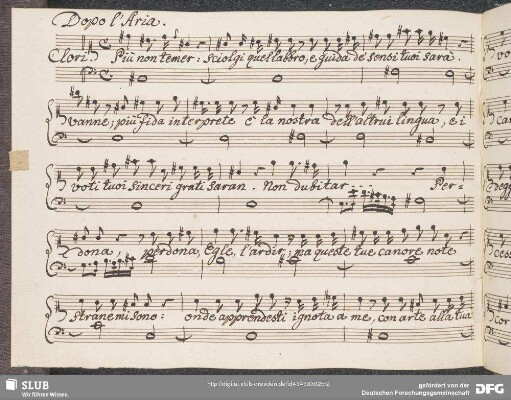 Dopo l'Aria.
Clori. Più non temer: sciolgi quel labbro, e guida de' sensi tuoi sarà.
vanne; più fida interprete è la nostra dell'altrui lingua, e i
voti tuoi sinceri grati saran. Non dubitar. Per-
dona, perdona, Egle, l'ardir; ma queste tue canore note
strane mi sono: onde apprendesti ignota a me, con arte alla tua
SLUB
Wir führen Wissen.
gefördert von der
Deutschen Forschungsgemeinschaft
DFG